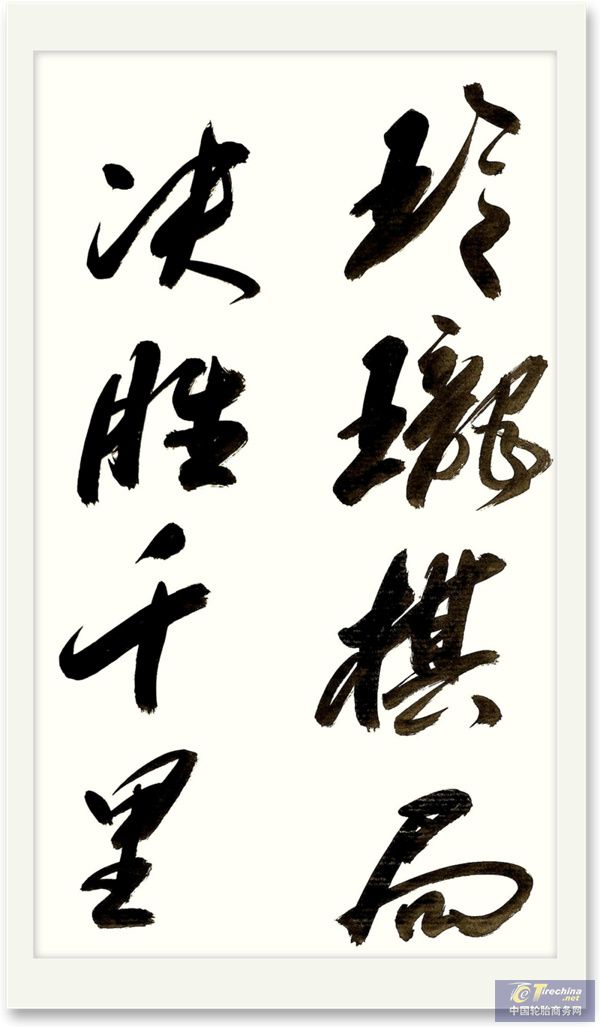 玲瓏棋局
决胜千里
Tirechina
.net
中国轮胎商务网